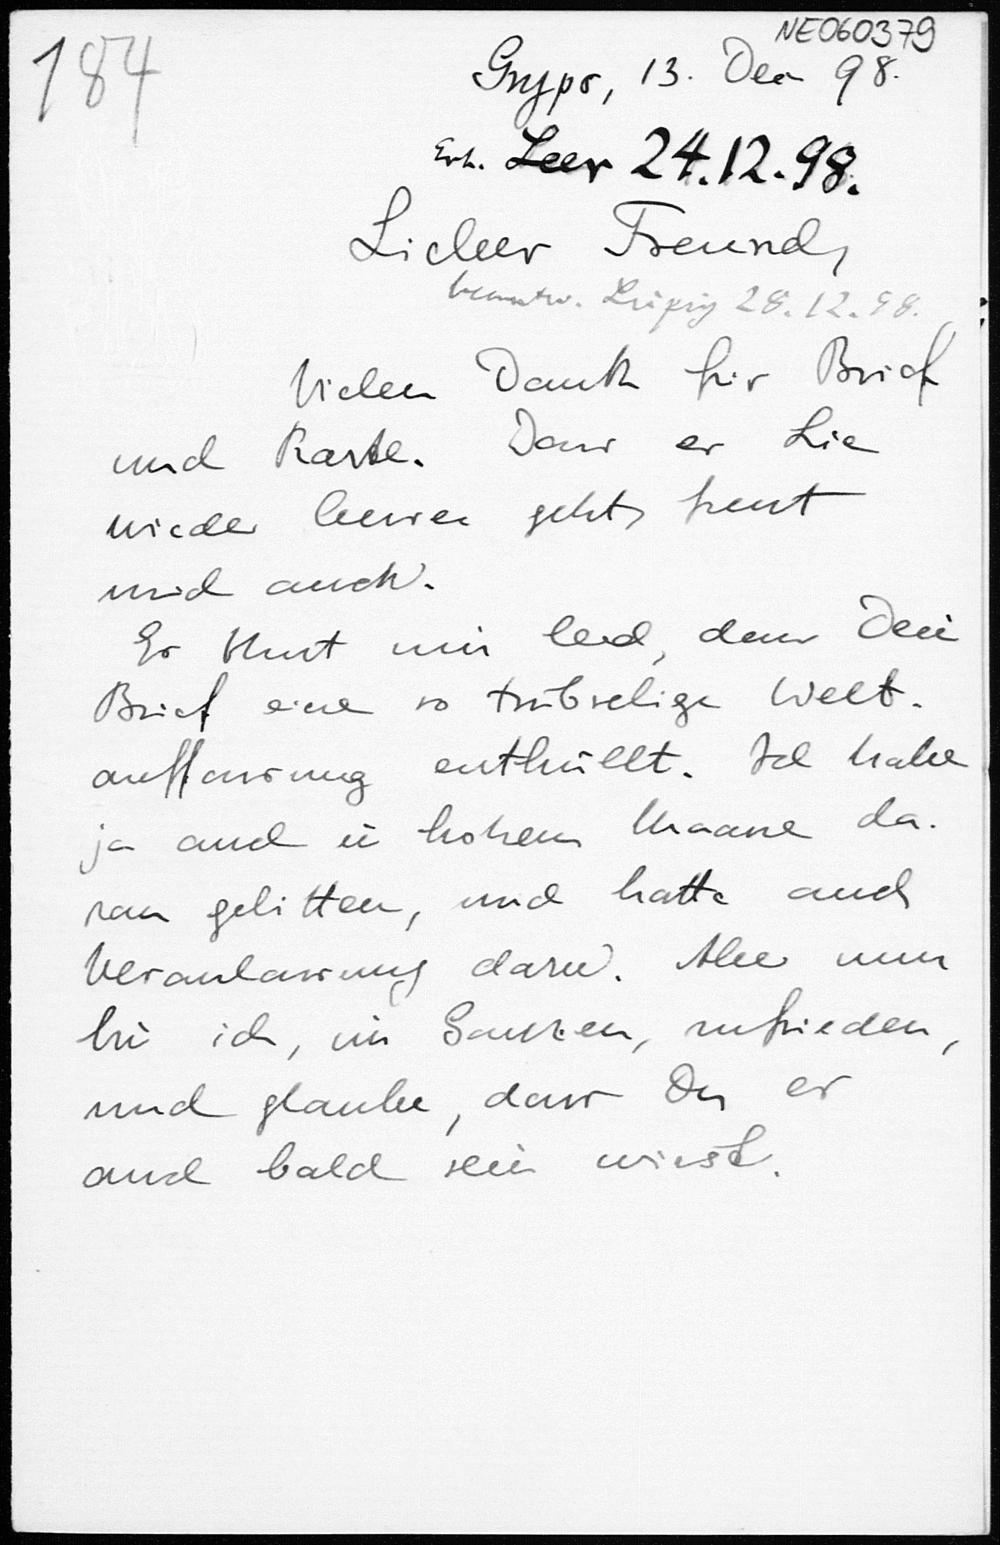 NE060379
184
Gryps, 13. Dec 98.
Erh. Leer 24.12.98.
Lieber Freund,
beantw. Leipzig 28.12.98.
Vielen Dank für Brief
und Karte. Dass es Sie
wieder besser geht, freut
mich auch.
Es thut mir leid, dass Dein
Brief eine so trübselige Welt-
auffassung enthüllt. Ich habe
ja auch in hohem Maasse da-
ran gelitten, und hatte auch
Veranlassung dazu. Aber nun
bin ich, im Ganzen, zufrieden,
und glaube, dass Du es
auch bald sein wirst.